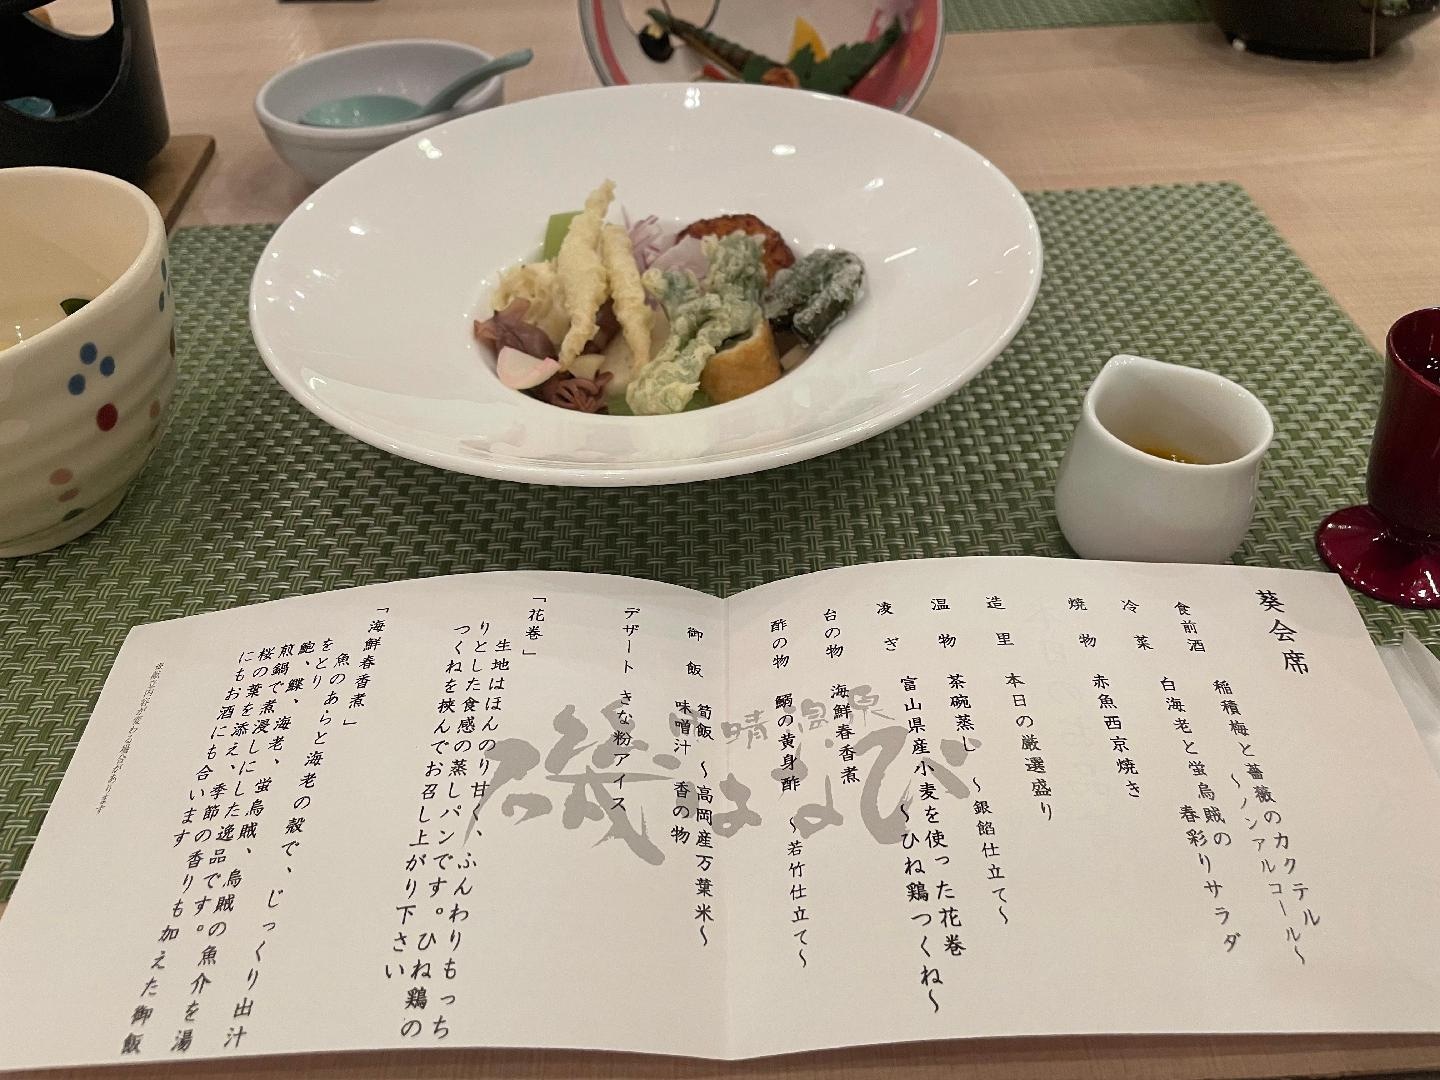 葵会席
食前酒 稲積梅と薔薇のカクテル
～ノンアルコール～
冷菜 白海老と蛍烏賊の
春彩りサラダ
焼物 赤魚西京焼き
造里 本日の厳選盛り
温物 茶碗蒸し ～銀餡仕立て～
凌ぎ 富山県産小麦を使った花巻
～ひね鶏つくね～
台の物 海鮮春香煮
酢の物 鰯の黄身酢 ～若竹仕立て～
御飯 筍飯 ～高岡産万葉米～
味噌汁 香の物
デザート きな粉アイス
雨晴温泉
磯はなび
「花巻」
生地はほんのり甘く、ふんわりもっち
りとした食感の蒸しパンです。ひね鶏の
つくねを挟んでお召し上がり下さい
「海鮮春香煮」
魚のあらと海老の殻で、じっくり出汁
をとり
鮑、鰈、海老、蛍烏賊、烏賊の魚介を湯
煎鍋で煮浸しにした逸品です。
桜の葉を添え、季節の香りも加えた御飯
にもお酒にも合います
内容が変わる場合があります